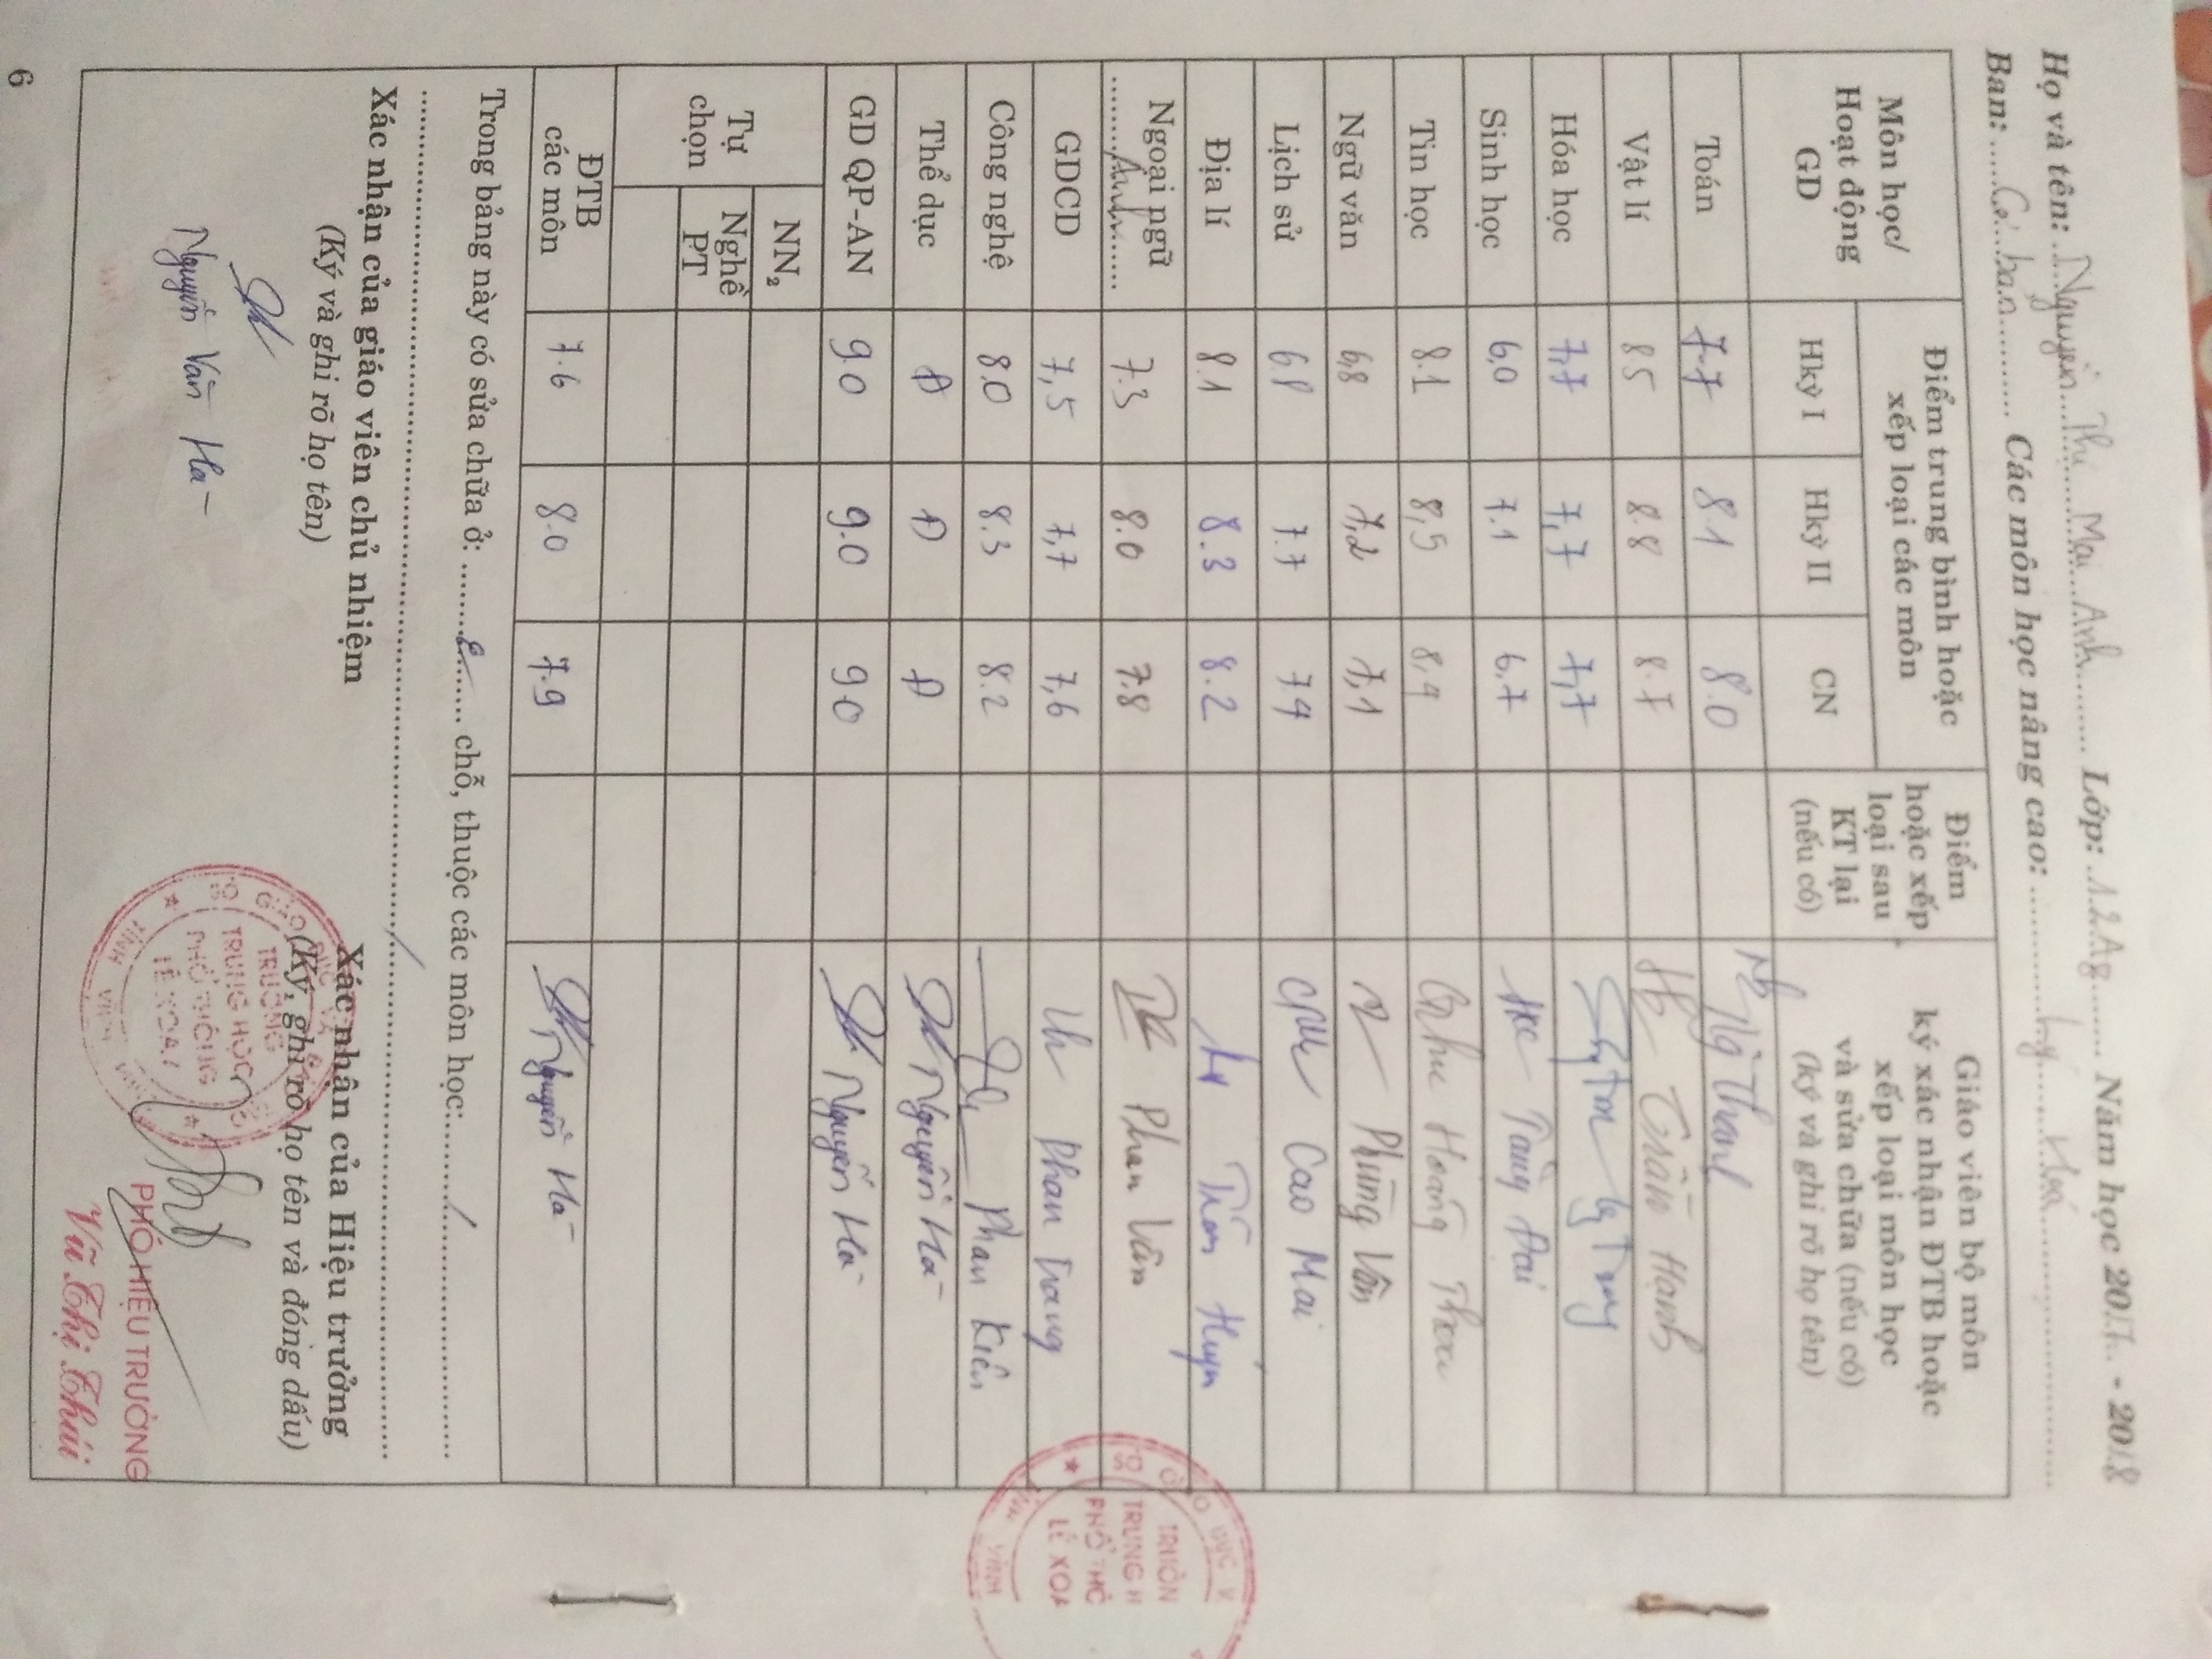 Họ và tên: Nguyễn Thị Mai Anh Lớp: 12A9 Năm học 2017 - 2018
Ban: Cơ bản Các môn học nâng cao: Lý Hoá
Môn học/ Hoạt động GD
Điểm trung bình hoặc xếp loại các môn
Điểm hoặc xếp loại sau KT lại (nếu có)
Giáo viên bộ môn ký xác nhận ĐTB hoặc xếp loại môn học và sửa chữa (nếu có) (ký và ghi rõ họ tên)
Hkỳ I Hkỳ II CN
Toán 7.7 8.1 8.0 Thanh
Vật lí 8.5 8.8 8.7 Trần Hạnh
Hóa học 7,7 7,7 7,7
Sinh học 6,0 7.1 6.7 Tăng Đại
Tin học 8.1 8,5 8,4 Hoàng Thoa
Ngữ văn 6,8 7,2 7,1 Phùng Vân
Lịch sử 6.8 7.7 7.4 Cao Mai
Địa lí 8.1 8.3 8.2 Trần Huyện
Ngoại ngữ Anh 7.3 8.0 7.8 Phan Vân
GDCD 7,5 7,7 7,6 Phan Trang
Công nghệ 8.0 8.3 8.2 Phan Kiên
Thể dục Đ Đ Đ Nguyễn Hà
GD QP-AN 9.0 9.0 9.0 Nguyễn Hà
Tự chọn
NN₂
Nghề PT
ĐTB các môn 7.6 8.0 7.9 Nguyễn Hà
Trong bảng này có sửa chữa ở: chỗ, thuộc các môn học: /
Xác nhận của giáo viên chủ nhiệm
(Ký và ghi rõ họ tên)
Nguyễn Văn Hà
Xác nhận của Hiệu trưởng
(Ký, ghi rõ họ tên và đóng dấu)
TRƯỜNG
TRUNG HỌC
PHỔ THÔNG
LÊ XOAY
PHÓ HIỆU TRƯỞNG
Vũ Thị Thúi
TRƯỜN
TRUNG H
PHỔ THÔ
LÊ XOA
6